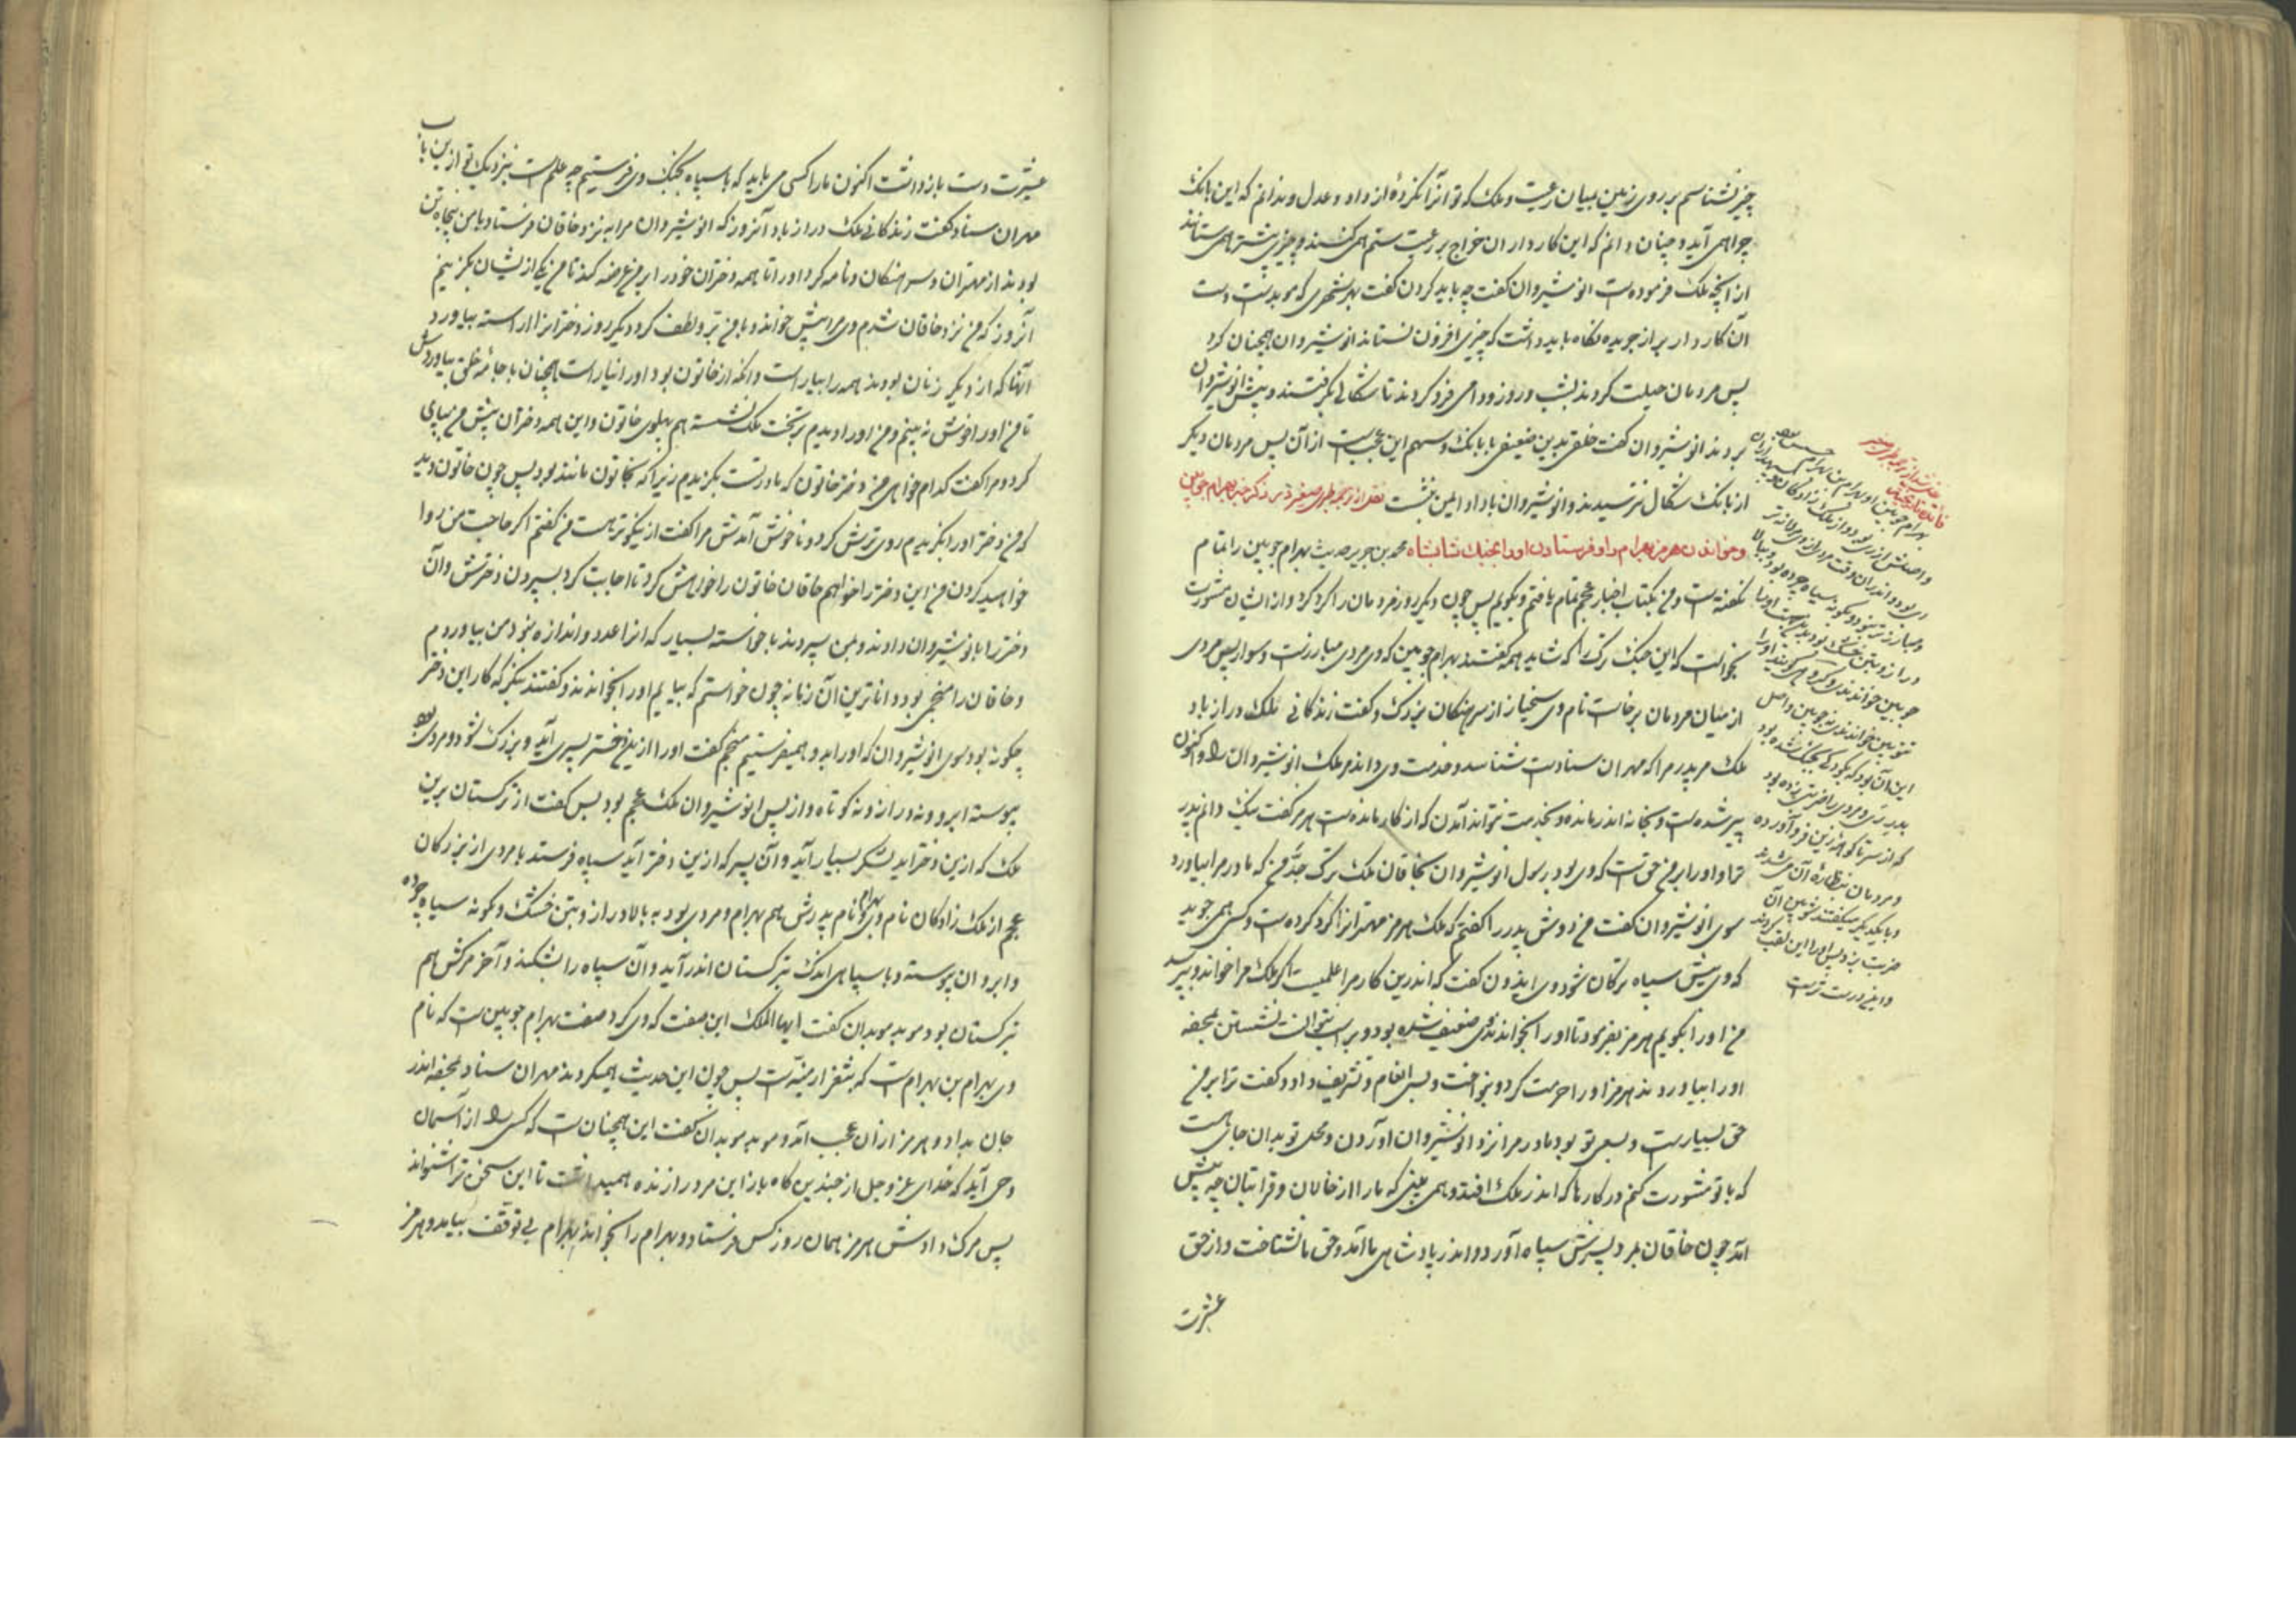 چیز نشناسم بر روی زمین بمیان رعیت و ملک که تو آنرا نکردهٔ از داد و عدل و ندانم که این بانک
چرا همی آید و چنان دانم که این کارداران خراج بر رعیت ستم همی کنند و چیزی بیشتر همی ستانند
از انچه ملک فرموده است انوشیروان گفت چه باید کردن گفت بهر شهری که موبد است دست
آن کاردار بر از جریده نگاه باید داشت که چیزی افزون نستاند انوشیروان همچنان کرد
پس مردمان حیلت کردند بشب و روز و دامی فرو کردند تا شگالی بگرفتند و پیش انوشیروان
بردند انوشیروان گفت خلقی بدین ضعیفی با بانک و سهم این عجب است از آن پس مردمان دیگر
از بانک شگال نترسیدند و انوشیروان با داد ایمن بنشست نقل از ترجمه طبری صغیر در ذکر خبر بهرام چوبین
و خواندن هرمز بهرام را و فرستادن او را بجنک شابشاه محمد بن جریر حدیث بهرام چوبین را بتمام
نگفته است و من بکتاب اخبار عجم تمام یافتم و بگویم پس چون دیگر روز مردمان را گرد کرد و از ایشان مشورت
بخواست که این جنک ترک را که شاید همه گفتند بهرام چوبین که وی مردی مبارزست و سوار پس مردی
از میان مردمان برخاست نام وی سخیار از سرهنکان بزرک و گفت زندکانی ملک دراز باد
ملک مر پدر مرا که مهران ستادست شناسد و خدمت وی داند مر ملک انوشیروان را و اکنون
پیر شده است و بخانه اندر مانده و بخدمت نتواند آمدن که از کار مانده است هرمز گفت نیک دانم پدر
ترا و او را بر من حق است که وی بود رسول انوشیروان بخاقان ملک ترک جد من که مادر مرا بیاورد
سوی انوشیروان گفت من دوش پدر را گفتم که ملک هرمز مهترانرا گرد کرده است و کسی همی جوید
که وی پیش سپاه ترکان شود وی ایدون گفت که اندرین کار مرا علمیست اگر ملک مرا خواند و بپرسد
من او را بگویم هرمز بفرمود تا او را بخواندند وی ضعیف شده بود و بر اسب نتوانست نشستن بمحفه
او را بیاوردند هرمز او را حرمت کرد و بنواخت و بسی انعام و تشریف داد و گفت ترا بر من
حق بسیارست و بسعی تو بود مادر مرا نزد انوشیروان آوردن و محل تو بدان جای است
که با تو مشورت کنم در کارها که اندر ملک افتد و همی بینی که ما را از خالان و قرابتان چه پیش
آمد چون خاقان بمرد پسرش سپاه آورد و اندر پادشاهی ما آمد و حق ما نشناخت و از حق
عشرت
بهرام چوبین او بهرام بن بهرام
و اصلش از ری بود و از ملک زادکان
در از و بتن خشک بود
چوبین خواندندی
این آن بود که بکودکی بجنک شده بود
پدر ری و مردی را ضربتی زده بود
که از سر تا کوهه زین فرو آورده
و مردمان بنظاره آن می شدند
و با یکدیگر میگفتند
ضربت بزد پس او را این لقب کردند
و این درست ترست
عشرت دست بازداشت اکنون ما را کسی می باید که با سپاه بجنک وی فرستیم چه علم است بنزدیک تو ازین باب
مهران ستاد گفت زندکانی ملک دراز باد آنروز که انوشیروان مرا به نزد خاقان فرستاد با من پنجاه تن
بودند از مهتران و سرهنکان و نامه کرد او را تا همه دختران خود را بر من عرضه کند تا من یکی از ایشان بگزینم
آنروز که من نزد خاقان شدم وی مرا پیش خواند و با من بر و لطف کرد و دیگر روز دخترانرا آراسته بیاورد
آنها که از دیگر زنان بودند همه را بیاراست و آنکه از خاتون بود او را نیاراست همچنان با جامهٔ خلق بیاوردش
تا من او را خوش نه بینم و من او را دیدم بر تخت ملک نشسته هم پهلوی خاتون و این همه دختران پیش من بپای
کرد و مرا گفت کدام خواهی من دختر خاتون که مادرست بگزیدم زیرا که بخاتون مانند بود پس چون خاتون دید
که من دختر او را بگزیدم روی ترش کرد و ناخوش آمدش مرا گفت ازین نیکوتر هست من گفتم اگر حاجت من روا
خواهید کردن من این دختر را خواهم خاقان خاتون را خواهش کرد تا اجابت کرد بسپردن دخترش و آن
دختر را با نوشیروان دادند و بمن سپردند با خواسته بسیار که آنرا عدد و اندازه نبود من بیاوردم
و خاقان را منجمی بود داناترین آن زمانه چون خواستم که بیایم او را بخواندند و گفتند بنگر که کار این دختر
چگونه بود سوی انوشیروان که او را بدو همیفرستیم منجم گفت او را ازین دختر پسری آید و بزرک شود و مردی بود
پیوسته ابرو و نه دراز و نه کوتاه و از پس انوشیروان ملک عجم بود پس گفت از ترکستان برین
ملک که ازین دختر آید لشکر بسیار آید و آن پسر که ازین دختر آید سپاه فرستد با مردی از بزرکان
عجم از ملک زادکان نام وی بهرام و نام پدرش هم بهرام و مردی بود به بالا دراز و بتن خشک و گونه سیاه چرده
و ابروان پیوسته و با سپاهی اندک بترکستان اندر آید و آن سپاه را بشکند و آخر مرکش هم
بترکستان بود موبد موبدان گفت ایها الملک این صفت که وی کرد صفت بهرام چوبین است که نام
وی بهرام بن بهرام است که بثغر ارمنیه است پس چون این حدیث همیکردند مهران ستاد بمحفه اندر
جان بداد و هرمز از آن عجب آمد و موبد موبدان گفت این همچنان است که کسی را از آسمان
وحی آید که خدای عز و جل از چندین گاه باز این مرد را زنده همیداشت تا این سخن ترا بشنواند
پس مرک دادش هرمز همان روز کس فرستاد و بهرام را بخواند بهرام بی توقف بیامد و هرمز